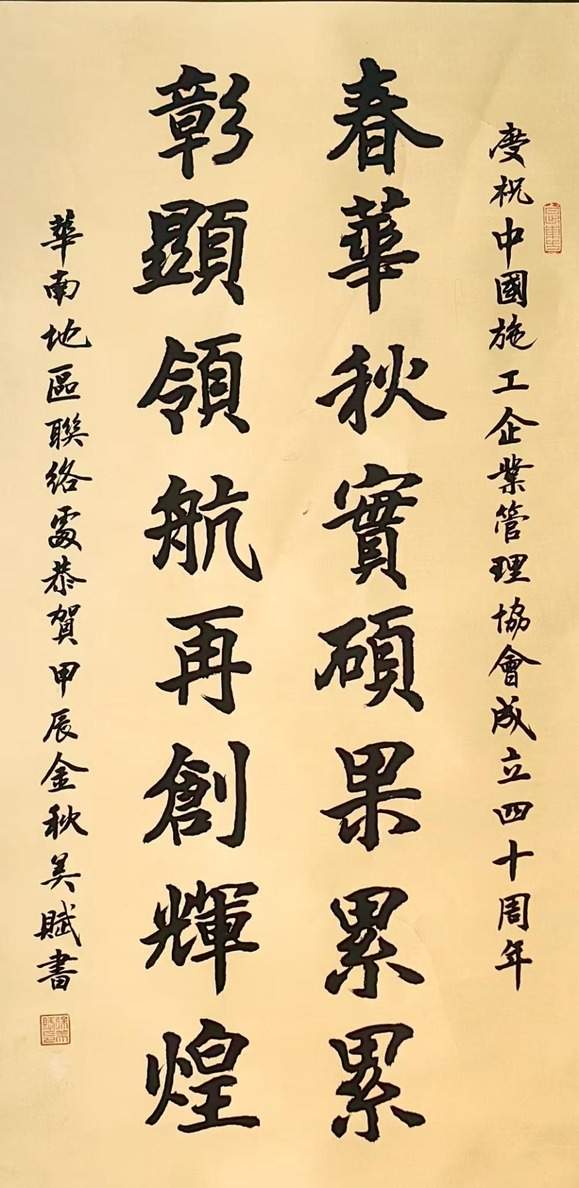 慶祝中國施工企業管理協會成立四十周年
春華秋實碩果累累
彰顯領航再創輝煌
華南地區聯絡處恭賀甲辰金秋吴賦書